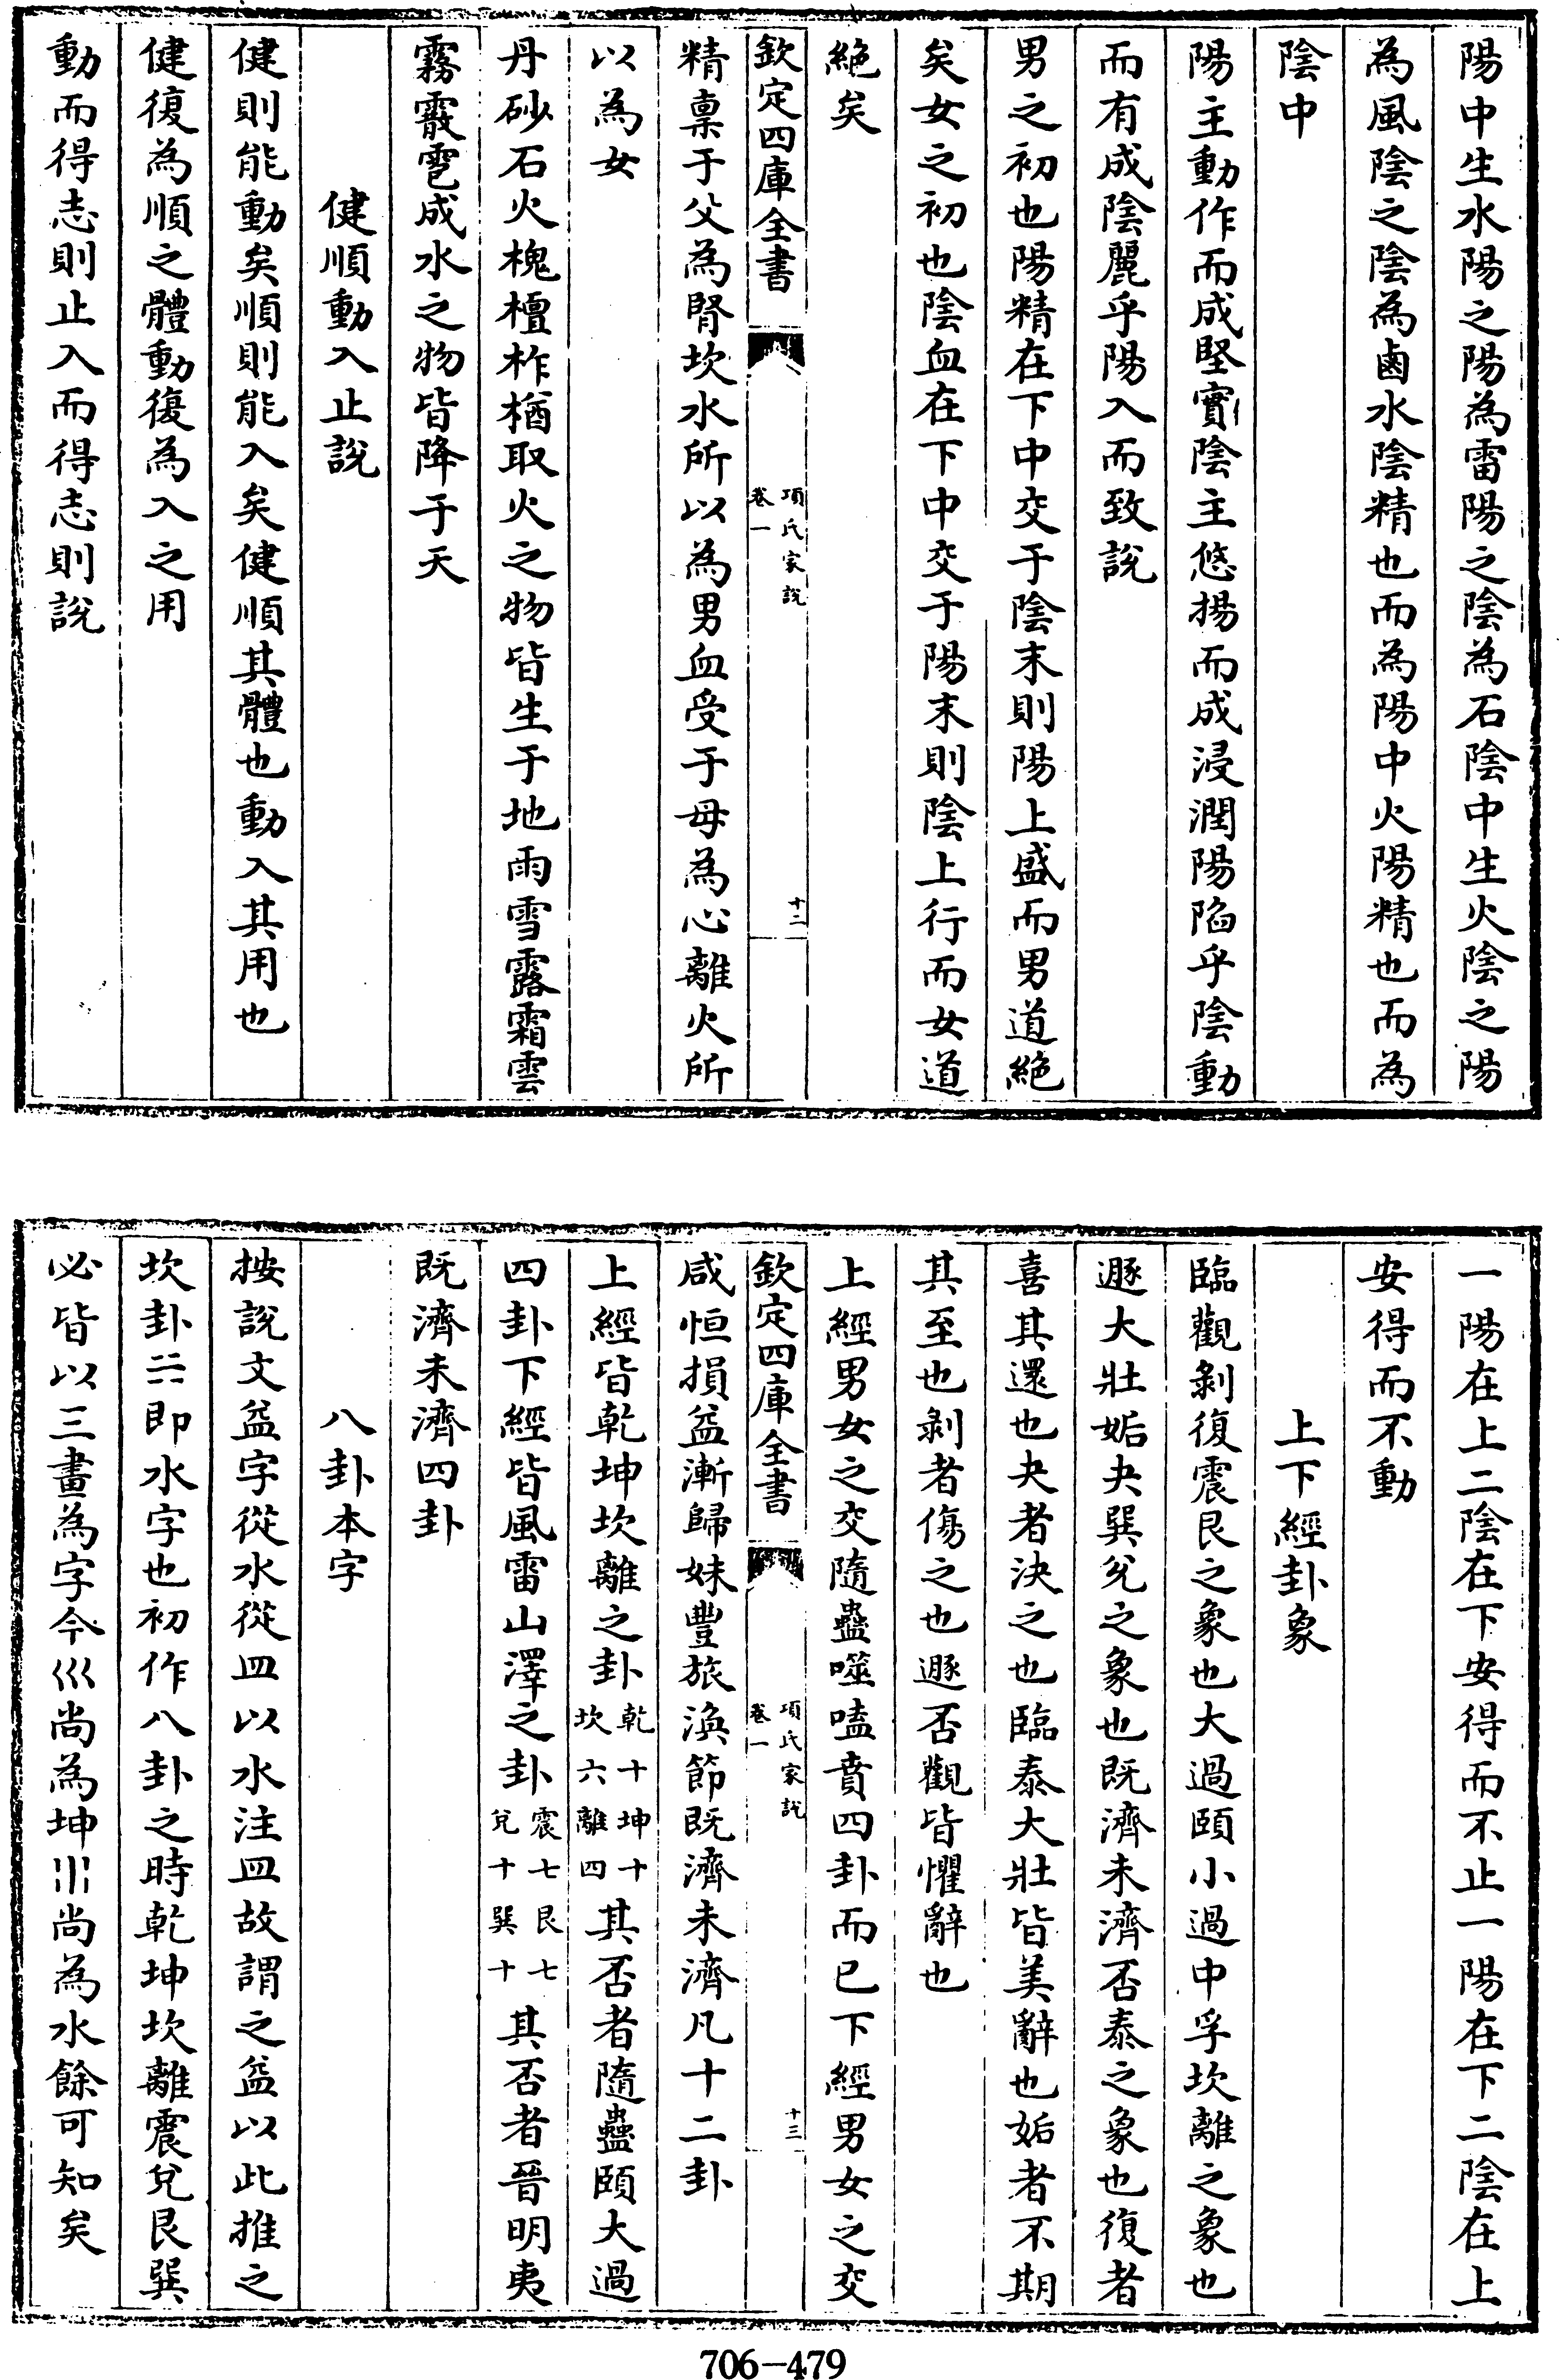 陽中生水陽之陽為雷陽之陰為石陰中生火陰之陽
為風陰之陰為鹵水陰精也而為陽中火陽精也而為
陰中
陽主動作而成堅實陰主悠揚而成浸潤陽陷乎陰動
而有成陰麗乎陽入而致說
男之初也陽精在下中交于陰末則陽上盛而男道絶
矣女之初也陰血在下中交于陽末則陰上行而女道
絶矣
欽定四庫全書
項氏家説
卷一
十二
精稟于父為腎坎水所以為男血受于母為心離火所
以為女
丹砂石火槐檀柞楢取火之物皆生于地雨雪露霜雲
霧霰雹成水之物皆降于天
健順動入止說
健則能動矣順則能入矣健順其體也動入其用也
健復為順之體動復為入之用
動而得志則止入而得志則說
一陽在上二陰在下安得而不止一陽在下二陰在上
安得而不動
上下經卦象
臨觀剝復震艮之象也大過頤小過中孚坎離之象也
遯大壯姤夬巽兌之象也既濟未濟否泰之象也復者
喜其還也夬者決之也臨泰大壯皆美辭也姤者不期
其至也剝者傷之也遯否觀皆懼辭也
上經男女之交隨蠱噬嗑賁四卦而已下經男女之交
欽定四庫全書
項氏家説
卷一
十三
咸恒損益漸歸妹豐旅渙節既濟未濟凡十二卦
上經皆乾坤坎離之卦乾十坤十坎六離四其否者隨蠱頤大過
四卦下經皆風雷山澤之卦震七艮七兌十巽十其否者晉明夷
既濟未濟四卦
八卦本字
按說文益字從水從皿以水注皿故謂之益以此推之
坎卦☵即水字也初作八卦之時乾坤坎離震兌艮巽
必皆以三畫為字今巛尚為坤〣尚為水餘可知矣
706-479